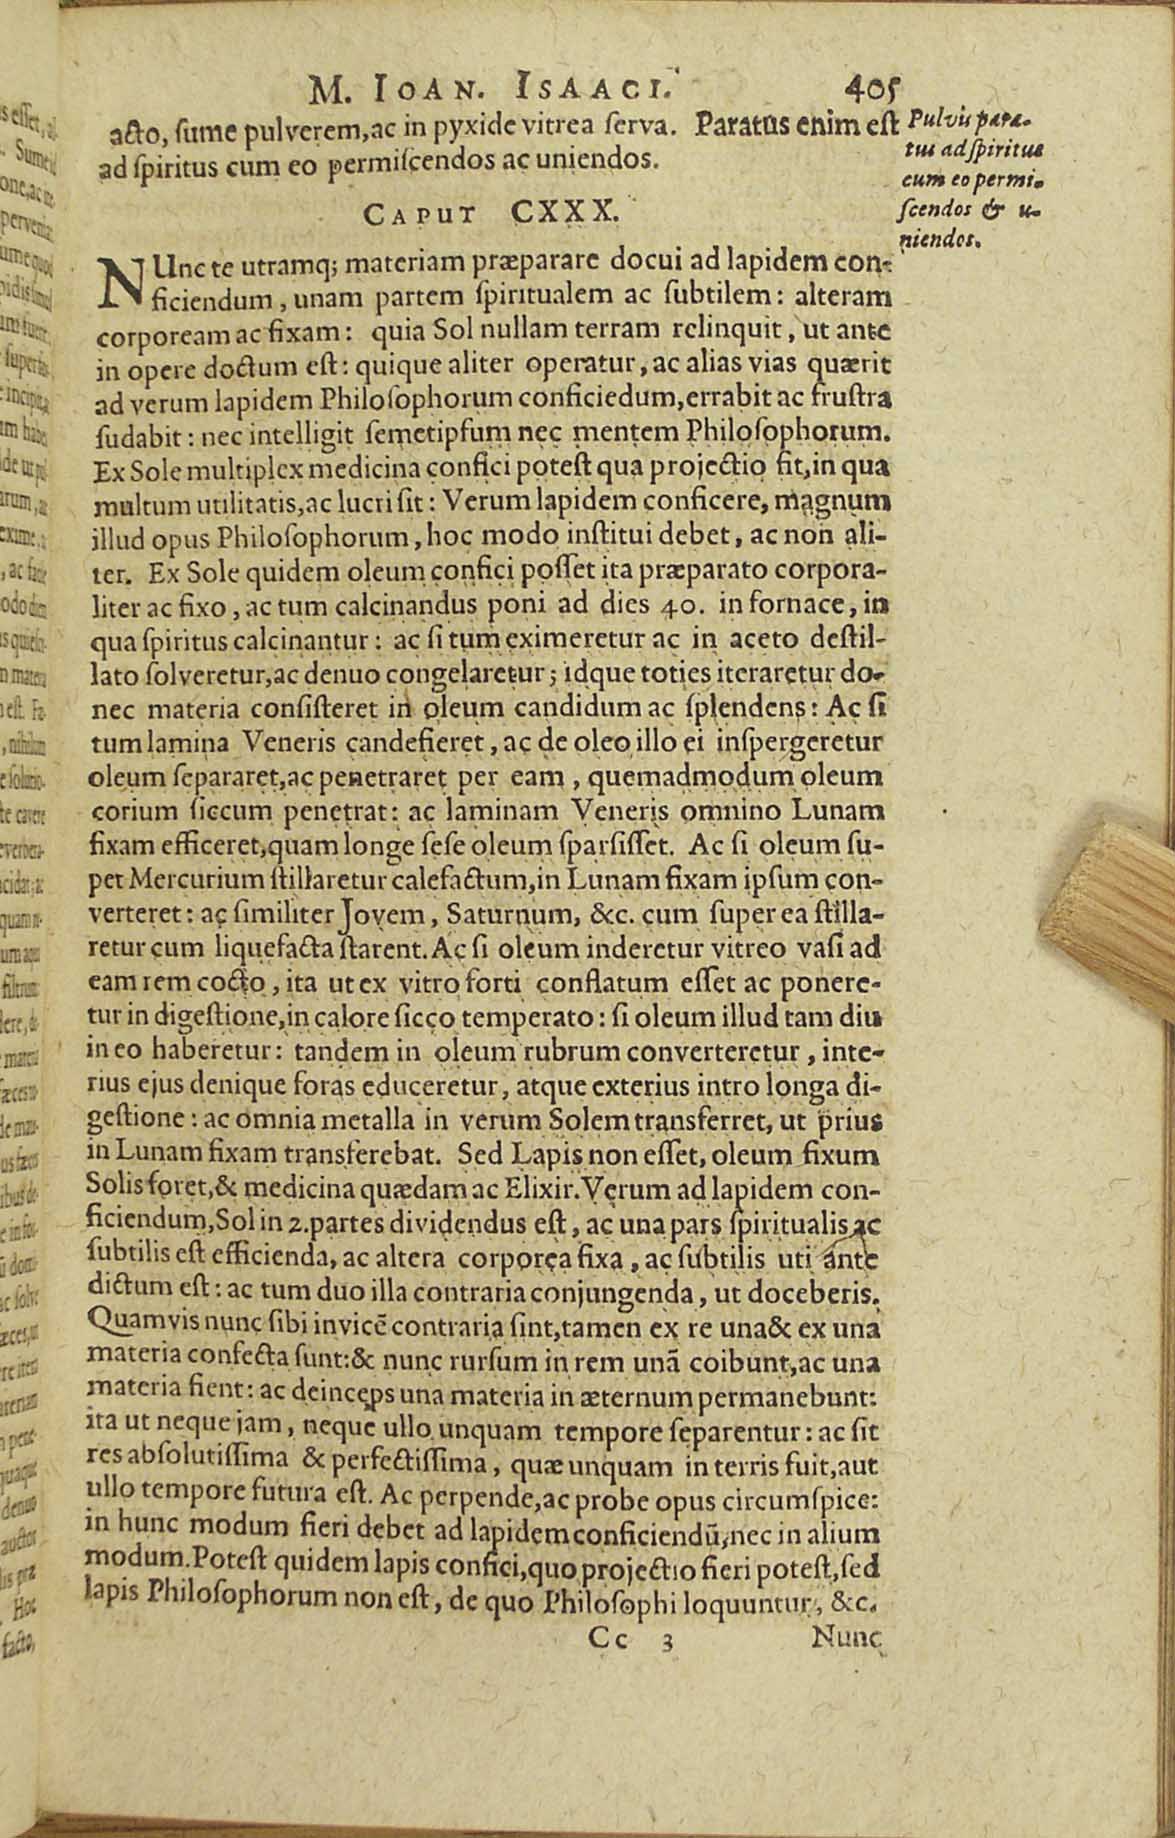 M. IOAN. ISAACI. 405
acto, sume pulverem, ac in pyxide vitrea serva. Paratus enim est
ad spiritus cum eo permiscendos ac uniendos.
Pulvis para-
tus ad spiritus
cum eo permi-
scendos & u-
niendos.
CAPUT CXXX.
NUnc te utramq; materiam præparare docui ad lapidem con-
ficiendum, unam partem spiritualem ac subtilem: alteram
corpoream ac fixam: quia Sol nullam terram relinquit, ut ante
in opere doctum est: quique aliter operatur, ac alias vias quærit
ad verum lapidem Philosophorum conficiedum, errabit ac frustra
sudabit: nec intelligit semetipsum nec mentem Philosophorum.
Ex Sole multiplex medicina confici potest qua projectio fit, in qua
multum utilitatis, ac lucri sit: Verum lapidem conficere, magnum
illud opus Philosophorum, hoc modo institui debet, ac non ali-
ter. Ex Sole quidem oleum confici posset ita præparato corpora-
liter ac fixo, ac tum calcinandus poni ad dies 40. in fornace, in
qua spiritus calcinantur: ac si tum eximeretur ac in aceto destil-
lato solveretur, ac denuo congelaretur; idque toties iteraretur do-
nec materia consisteret in oleum candidum ac splendens: Ac si
tum lamina Veneris candefieret, ac de oleo illo ei inspergeretur
oleum separaret, ac penetraret per eam, quemadmodum oleum
corium siccum penetrat: ac laminam Veneris omnino Lunam
fixam efficeret, quam longe sese oleum sparsisset. Ac si oleum su-
per Mercurium stillaretur calefactum, in Lunam fixam ipsum con-
verteret: ac similiter Jovem, Saturnum, &c. cum super ea stilla-
retur cum liquefacta starent. Ac si oleum inderetur vitreo vasi ad
eam rem cocto, ita ut ex vitro forti conflatum esset ac ponere-
tur in digestione, in calore sicco temperato: si oleum illud tam diu
in eo haberetur: tandem in oleum rubrum converteretur, inte-
rius ejus denique foras educeretur, atque exterius intro longa di-
gestione: ac omnia metalla in verum Solem transferret, ut prius
in Lunam fixam transferebat. Sed Lapis non esset, oleum fixum
Solis foret, & medicina quædam ac Elixir. Verum ad lapidem con-
ficiendum, Sol in 2. partes dividendus est, ac una pars spiritualis ac
subtilis est efficienda, ac altera corporea fixa, ac subtilis uti ante
dictum est: ac tum duo illa contraria conjungenda, ut doceberis.
Quamvis nunc sibi invicē contraria sint, tamen ex re una & ex una
materia confecta sunt: & nunc rursum in rem unā coibunt, ac una
materia fient: ac deinceps una materia in æternum permanebunt:
ita ut neque jam, neque ullo unquam tempore separentur: ac sit
res absolutissima & perfectissima, quæ unquam in terris fuit, aut
ullo tempore futura est. Ac perpende, ac probe opus circumspice:
in hunc modum fieri debet ad lapidem conficiendū, nec in alium
modum. Potest quidem lapis confici, quo projectio fieri potest, sed
lapis Philosophorum non est, de quo Philosophi loquuntur, &c.
Cc 3 Nunc